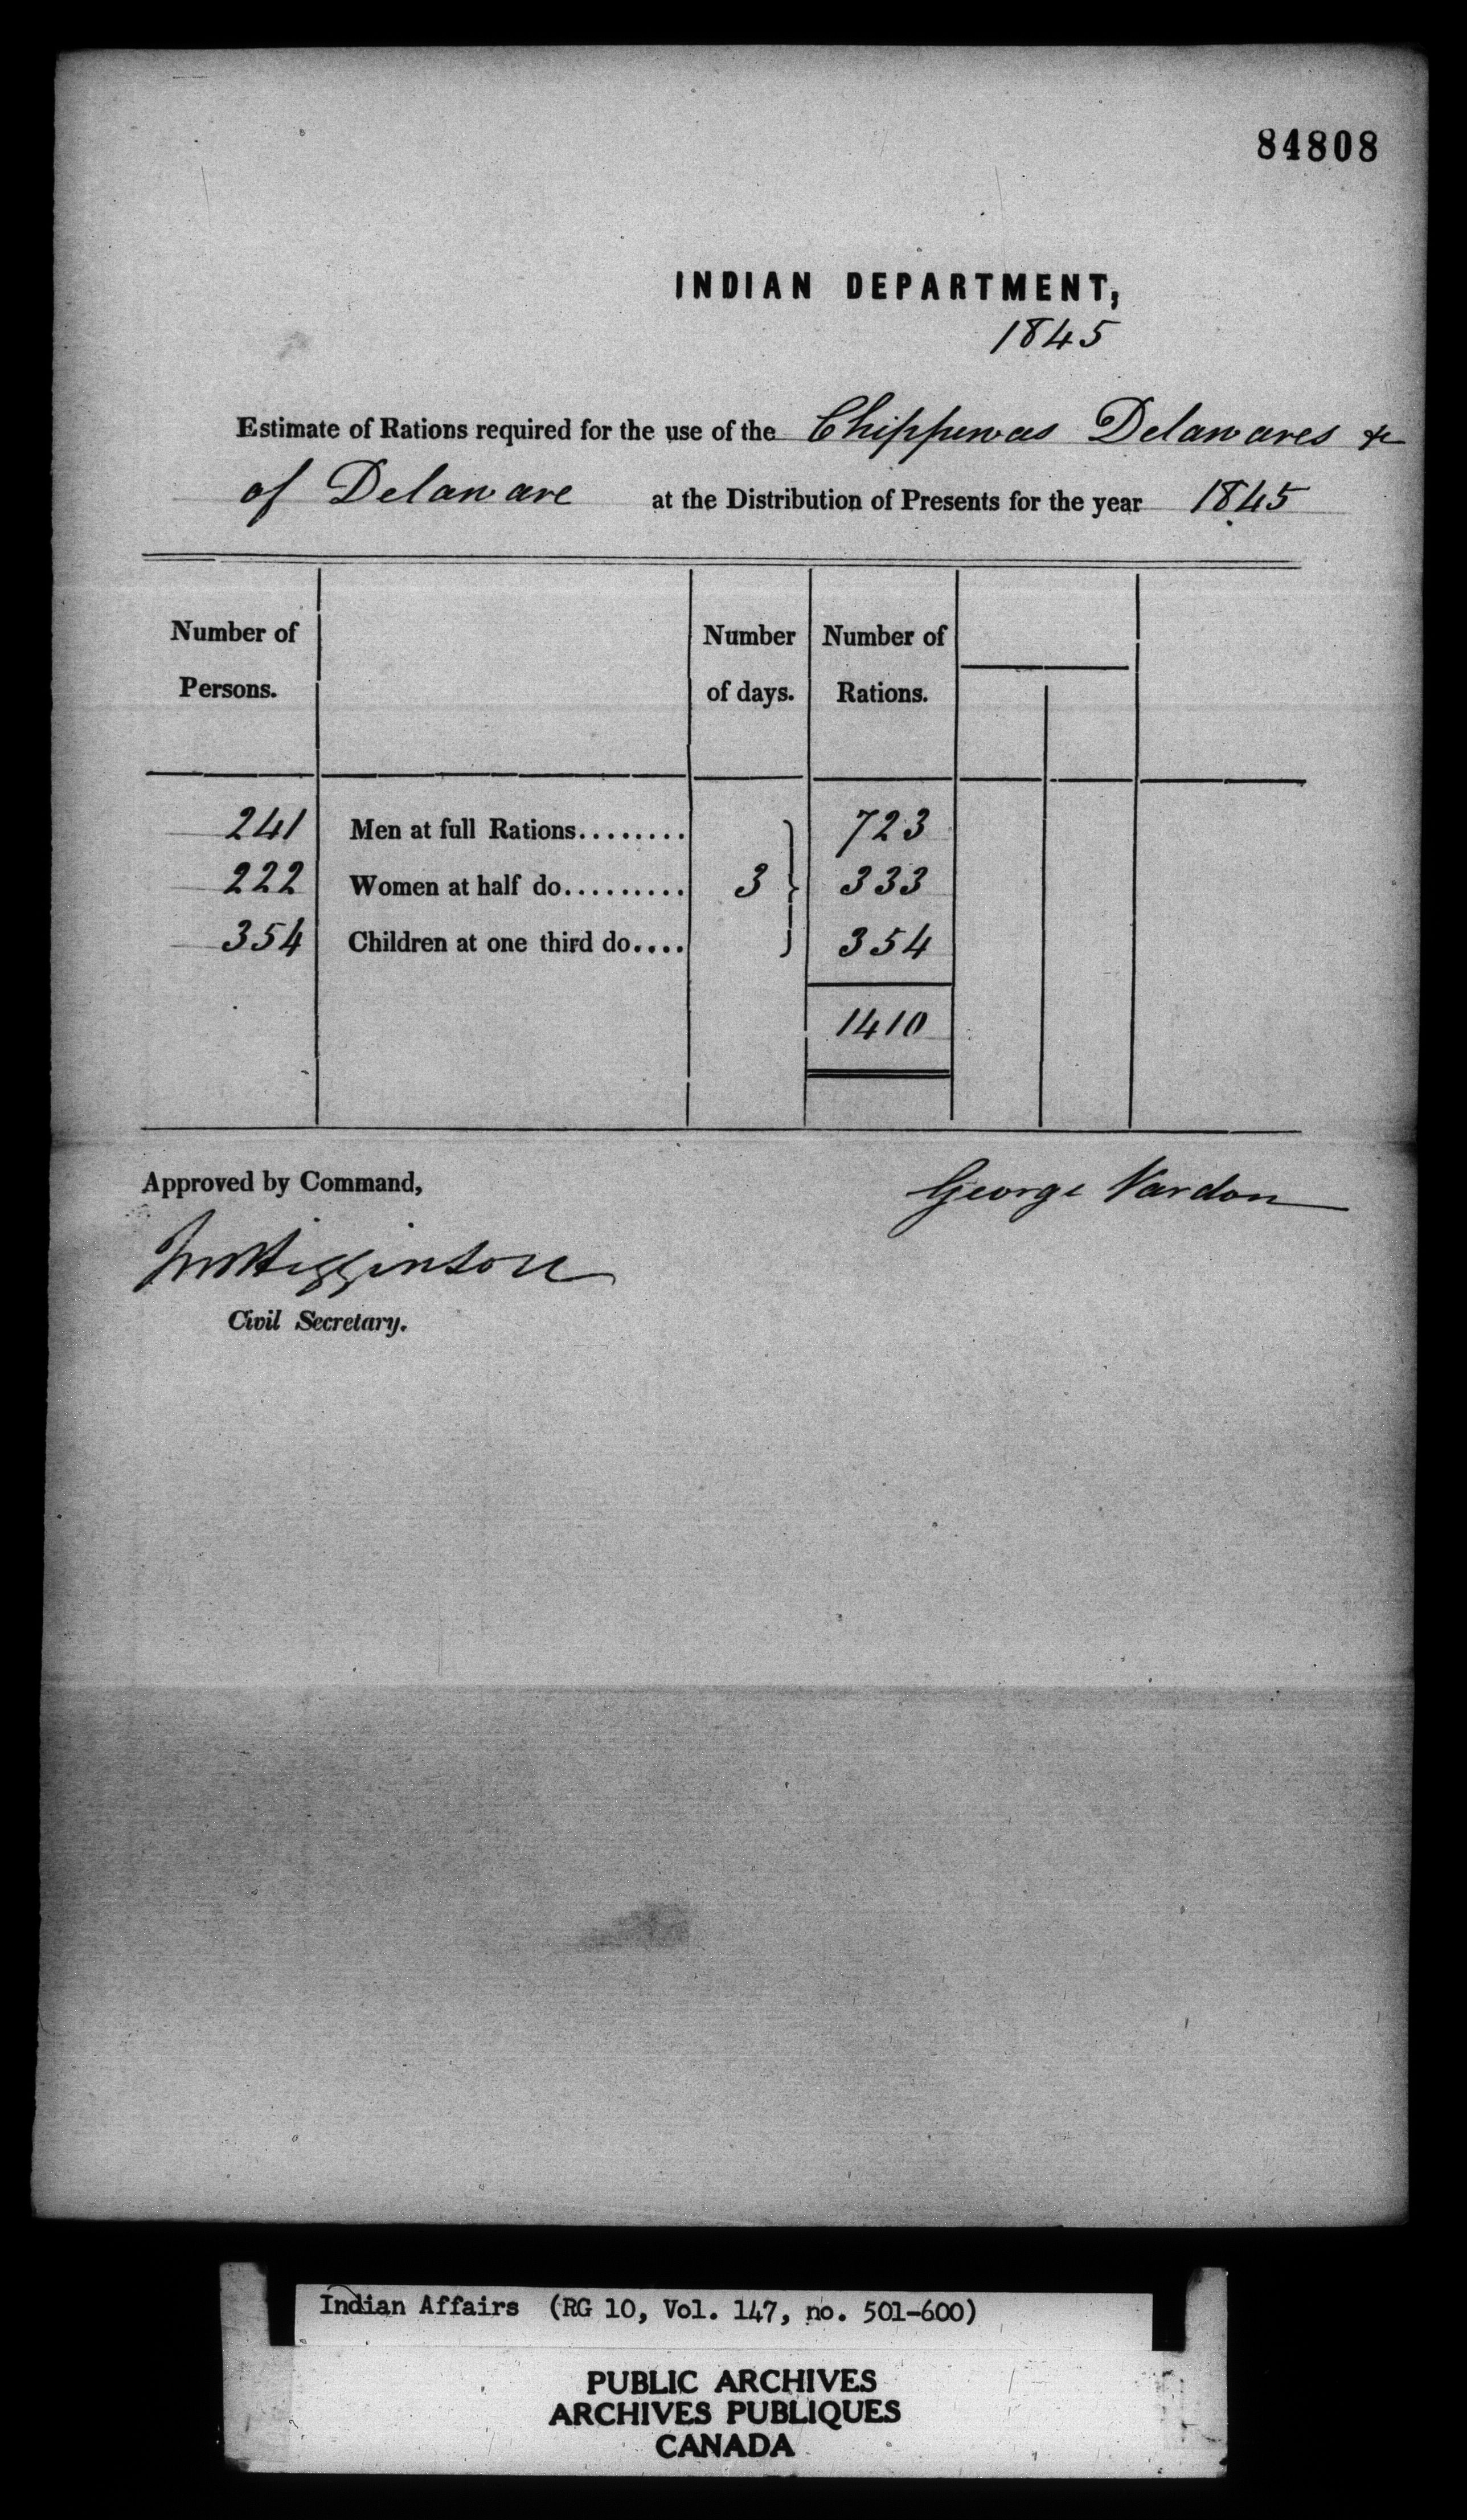 84808
INDIAN DEPARTMENT,
1845
Estimate of Rations required for the use of the Chippewas Delawares &c
of Delaware at the Distribution of Presents for the year 1845
Number of Persons. Number of days. Number of Rations.
241 Men at full Rations........ 723
222 Women at half do......... 3 } 333
354 Children at one third do.... 354
1410
Approved by Command, George Vardon
Higginson
Civil Secretary.
Indian Affairs (RG 10, Vol. 147, no. 501-600)
PUBLIC ARCHIVES
ARCHIVES PUBLIQUES
CANADA